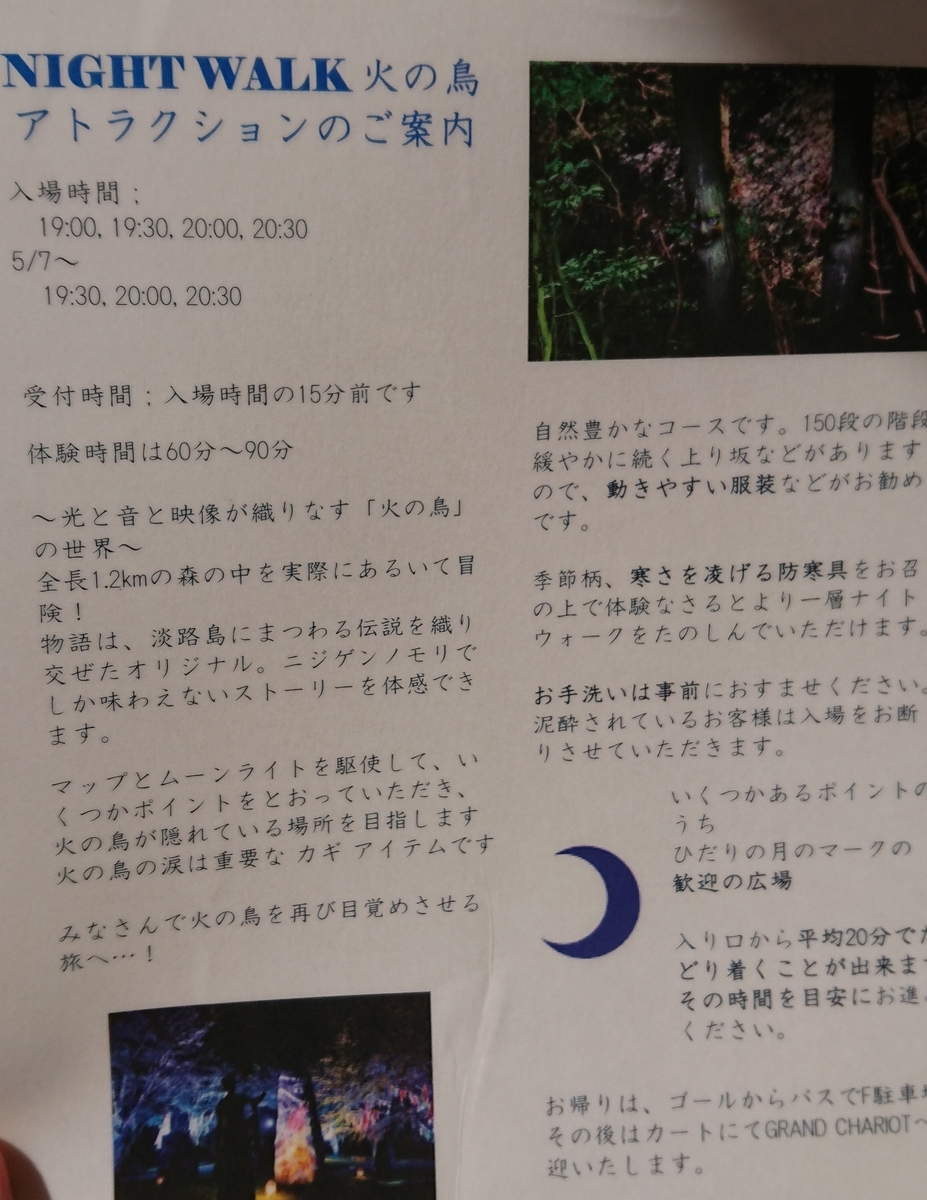 NIGHT WALK 火の鳥
アトラクションのご案内
入場時間；
19:00, 19:30, 20:00, 20:30
5/7～
19:30, 20:00, 20:30
受付時間；入場時間の15分前です
体験時間は60分～90分
～光と音と映像が織りなす「火の鳥」
の世界～
全長1.2kmの森の中を実際にあるいて冒
険！
物語は、淡路島にまつわる伝説を織り
交ぜたオリジナル。ニジゲンノモリで
しか味わえないストーリーを体感でき
ます。
マップとムーンライトを駆使して、い
くつかポイントをとおっていただき、
火の鳥が隠れている場所を目指します
火の鳥の涙は重要な カギ アイテムです
みなさんで火の鳥を再び目覚めさせる
旅へ…！
自然豊かなコースです。150段の階段
緩やかに続く上り坂などがあります
ので、動きやすい服装などがお勧め
です。
季節柄、寒さを凌げる防寒具をお召
の上で体験なさるとより一層ナイト
ウォークをたのしんでいただけます。
お手洗いは事前におすませください。
泥酔されているお客様は入場をお断
りさせていただきます。
いくつかあるポイントの
うち
ひだりの月のマークの
歓迎の広場
入り口から平均20分でた
どり着くことが出来ます
その時間を目安にお進
ください。
お帰りは、ゴールからバスでF駐車場
その後はカートにてGRAND CHARIOT～
迎いたします。